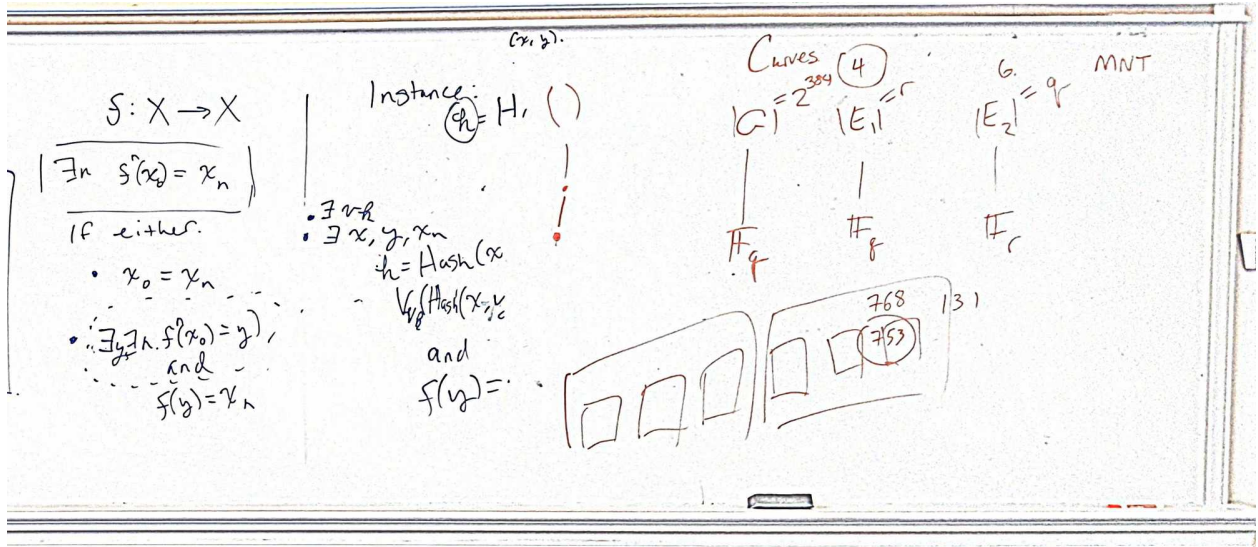 (x, y).
f: X → X
∃n fⁿ(x₀) = xₙ
If either.
• x₀ = xₙ
• ∃y,∃n. fⁿ(x₀) = y),
and
f(y) = xₙ
Instance:
h = H, ( )
• ∃
• ∃ x, y, xₙ
h = Hash(x
(Hash(x,
and
f(y) =
Curves 4 6. MNT
|G| = 2³⁸⁴ |E₁| = r |E₂| = q
𝔽_q 𝔽_q 𝔽_r
768 131
753